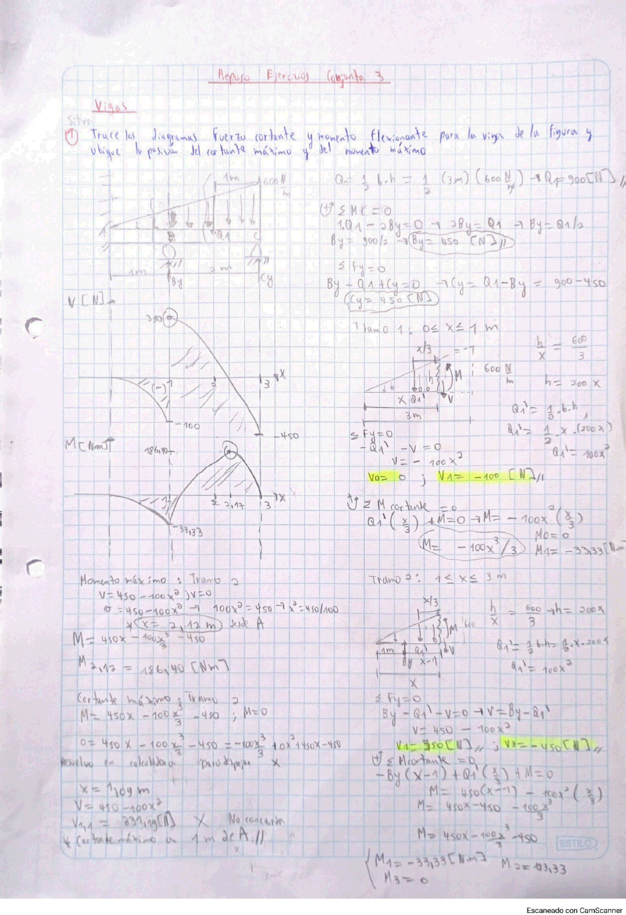 Repaso Ejercicios Conjunta 3
Vigas
① Trace los diagramas fuerza cortante y momento flexionante para la viga de la figura y
ubique la posición del cortante máximo y del momento máximo
1m
600 N/m
A
Q1
C
1m
2m
By
Cy
Q1 = 1/2 b.h = 1/2 (3m) (600 N/m) → Q1 = 900 [N] //
Σ MC = 0
1.Q1 - 2By = 0 → 2By = Q1 → By = Q1/2
By = 900/2 → By = 450 [N] //
Σ Fy = 0
By - Q1 + Cy = 0 → Cy = Q1 - By = 900 - 450
Cy = 450 [N]
V [N]
350
(-)
-100
3
x
-450
M [Nm]
186,40
2
2,12
3
x
-33,33
Tramo 1: 0 ≤ x ≤ 1 m
x/3
h
M
600 N/m
x
Q1'
V
3m
h/x = 600/3
h = 200x
Q1' = 1/2 . b.h
Q1' = 1/2 x . (200x)
Q1' = 100x²
Σ Fy = 0
- Q1' - V = 0
V = - 100x²
V0 = 0 ; V1 = -100 [N] //
Σ M cortante = 0
Q1' (x/3) + M = 0 → M = - 100x² (x/3)
M = - 100x³/3
M0 = 0
M1 = -33,33 [Nm]
Tramo 2: 1 ≤ x ≤ 3 m
x/3
M
600
1m
Q1'
V
By
x-1
x
h/x = 600/3 → h = 200x
Q1' = 1/2 b.h = 1/2 . x . 200x
Q1' = 100x²
Σ Fy = 0
By - Q1' - V = 0 → V = By - Q1'
V = 450 - 100x²
V1 = 350 [N] // ; V3 = - 450 [N] //
Σ M cortante = 0
- By (x-1) + Q1' (x/3) + M = 0
M = 450(x-1) - 100x² (x/3)
M = 450x - 450 - 100x³/3
M = 450x - 100x³/3 - 450
M1 = -33,33 [N.m]
M3 = 0
Momento máximo: Tramo 2
V = 450 - 100x² ; V = 0
0 = 450 - 100x² → 100x² = 450 → x² = 450/100
* x = 2,12 m desde A
M = 450x - 100x³/3 - 450
M2,12 = 186,40 [Nm]
Cortante máximo: Tramo 2
M = 450x - 100x³/3 - 450 ; M = 0
0 = 450x - 100x³/3 - 450 = -100x³/3 + 0x² + 450x - 450
resuelvo en calculadora para despejar x
x = 1,09 m
V = 450 - 100x²
* Cortante máximo a 1m de A //
ESTILO
Escaneado con CamScanner